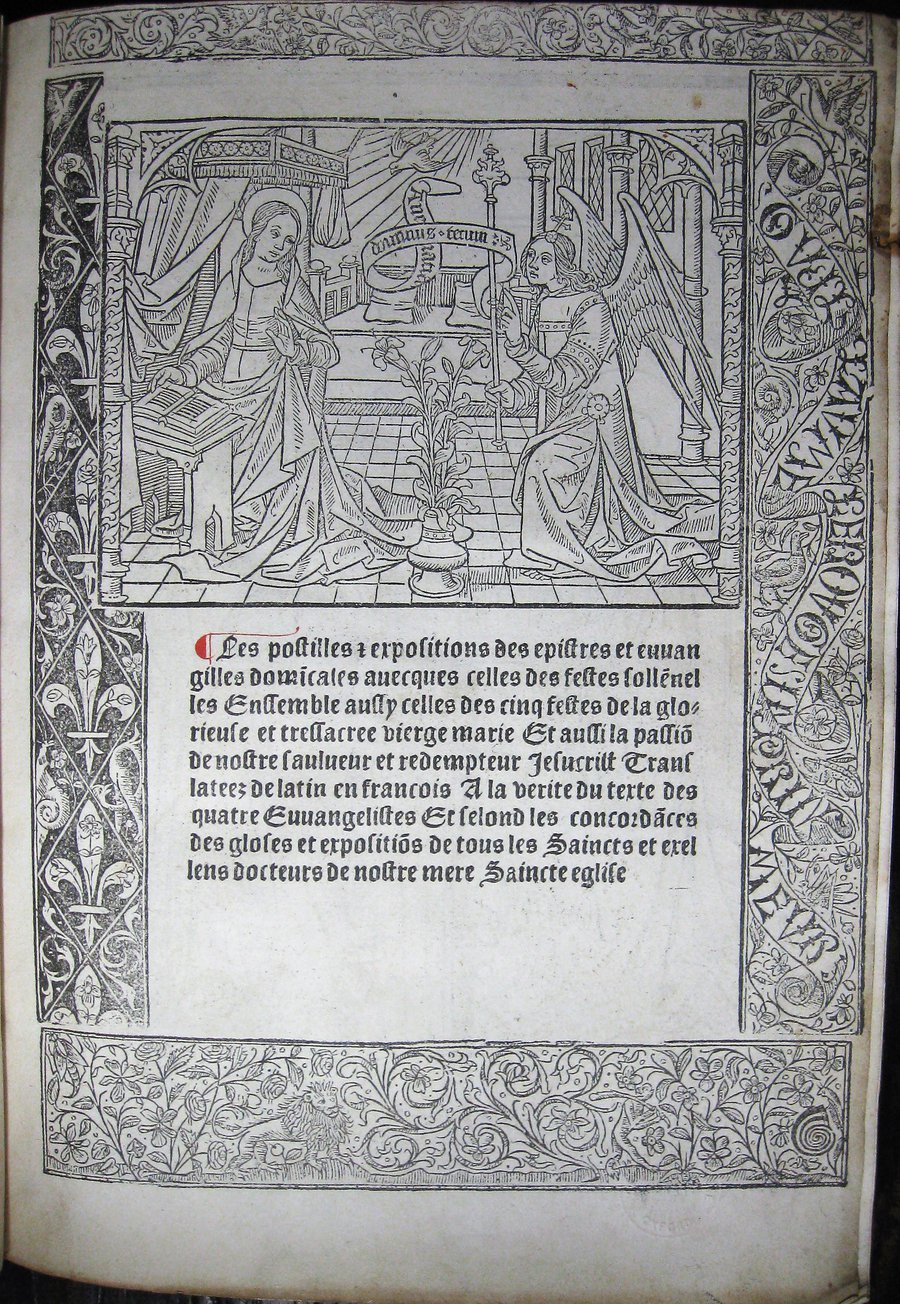 dominus tecum
Les postilles ⁊ expositions des epistres et euuan
gilles domĩcales auecques celles des festes sollẽnel
les Enssemble aussy celles des cinq festes de la glo⸗
rieuse et tressacree vierge marie Et aussi la passiõ
de nostre saulueur et redempteur Jesucrist Trans
lateez de latin en francois A la verite du texte des
quatre Euuangelistes Et selond les concordãces
des gloses et expositiõs de tous les Saincts et exel
lens docteurs de nostre mere Saincte eglise